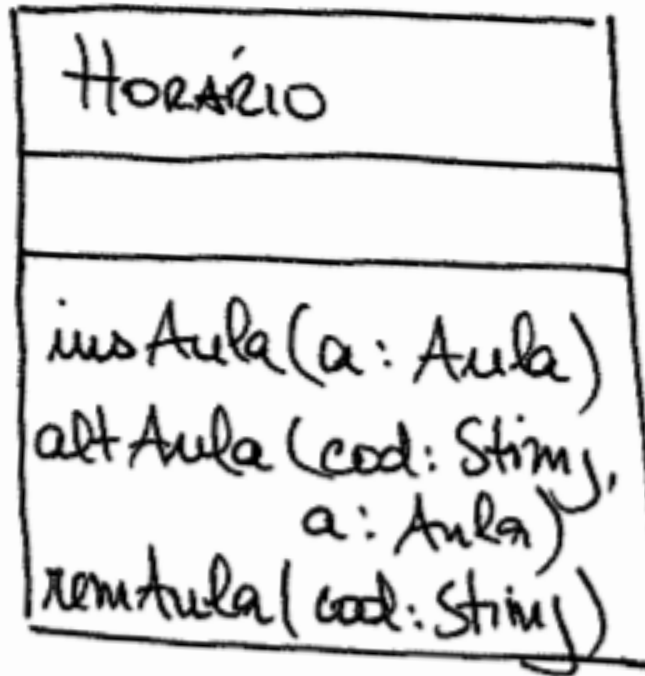 HORÁRIO
insAula(a: Aula)
altAula(cod: String,
a: Aula)
remAula(cod: String)